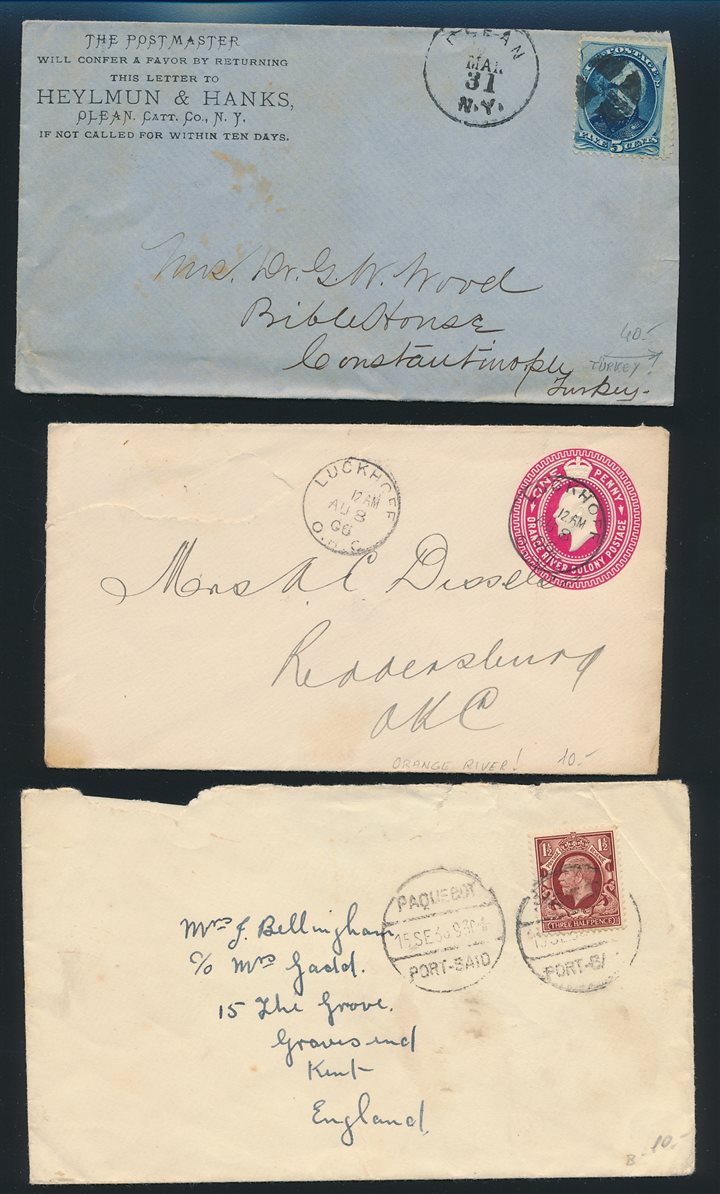 THE POSTMASTER
WILL CONFER A FAVOR BY RETURNING
THIS LETTER TO
HEYLMUN & HANKS,
OLEAN, CATT. CO., N. Y.
IF NOT CALLED FOR WITHIN TEN DAYS.
OLEAN
MAR
31
N.Y.
POSTAGE
FIVE 5 CENTS
Mrs. Dr. G. W. Wood
Bible House
Constantinople
Turkey.
40.-
TURKEY!
LUCKHOFF
12 AM
AU 8
06
O.R.C.
ONE PENNY
ORANGE RIVER COLONY POSTAGE
LUCKHOFF
12 AM
8
Mrs A. C. Dissels
Reddersburg
ORC
ORANGE RIVER! 10.-
1½ 1½
THREE HALFPENCE
PAQUEBOT
15 SE
PORT-SAID
PORT-SA
Mrs J. Bellingham
c/o Mrs Gadd.
15 The Grove.
Gravesend
Kent
England
B- 10.-